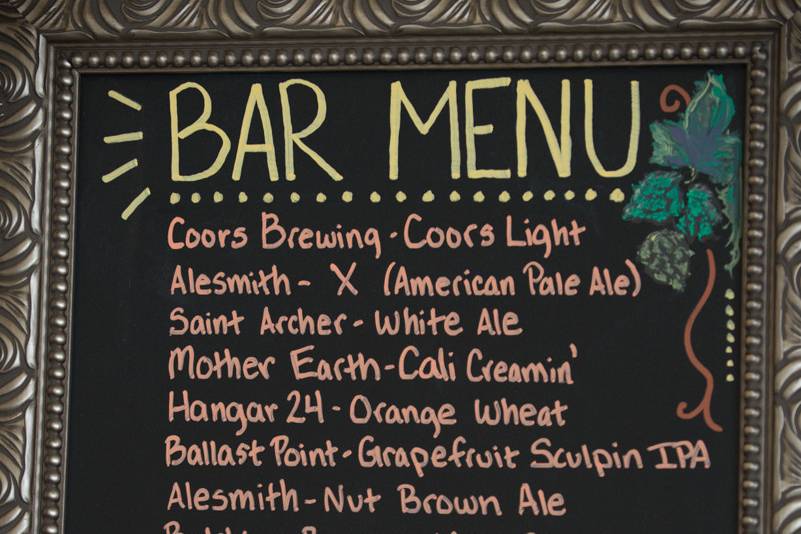 BAR MENU
Coors Brewing - Coors Light
Alesmith - X (American Pale Ale)
Saint Archer - White Ale
Mother Earth - Cali Creamin'
Hangar 24 - Orange Wheat
Ballast Point - Grapefruit Sculpin IPA
Alesmith - Nut Brown Ale